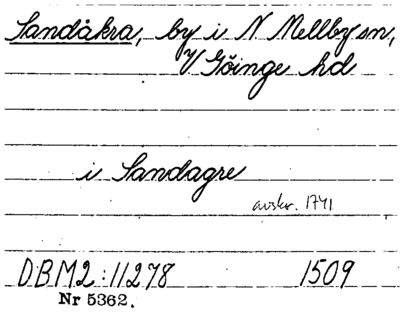 Sandåkra, by i N Mellby sn,
V Göinge hd
i Sandagre
avskr. 1741
DBM2:11278 1509
Nr 5362.